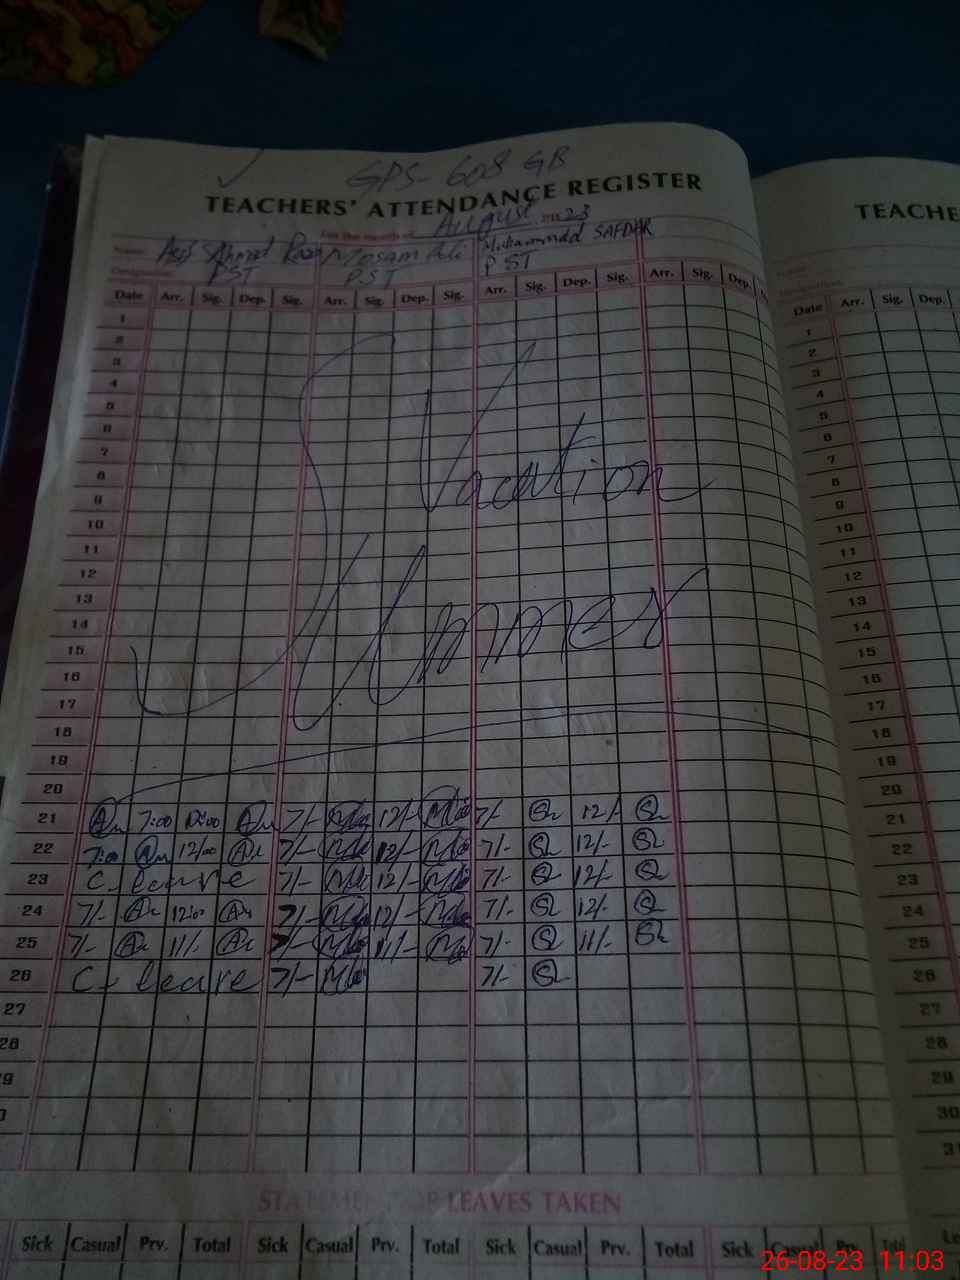 GPS- 608 GB
TEACHERS' ATTENDANCE REGISTER
For the month of August 2023
Name Asif Ahmed Raza Mosam Ali Muhammad SAFDAR
Designation PST PST PST
Date Arr. Sig. Dep. Sig. Arr. Sig. Dep. Sig. Arr. Sig. Dep. Sig. Arr. Sig. Dep.
1
2
3
4
5
6
7
8
9
10
11
12
13
14
15
16
17
18
19
20
Summer Vacation
21 7:00 12:00 7/- 12/- 7/- 12/-
22 7:00 12/00 7/- 12/- 7/- 12/-
23 C- leave 7/- 12/- 7/- 12/-
24 7/- 12:00 7/- 12/- 7/- 12/-
25 7/- 11/- 7/- 11/- 7/- 11/-
26 C- leave 7/- 7/-
27
28
29
30
STATEMENT OF LEAVES TAKEN
Sick Casual Prv. Total Sick Casual Prv. Total Sick Casual Prv. Total Sick Casual Prv. Total
TEACHE
Date Arr. Sig. Dep.
1
2
3
4
5
6
7
8
9
10
11
12
13
14
15
16
17
18
19
20
21
22
23
24
25
26
27
28
29
30
26-08-23 11:03